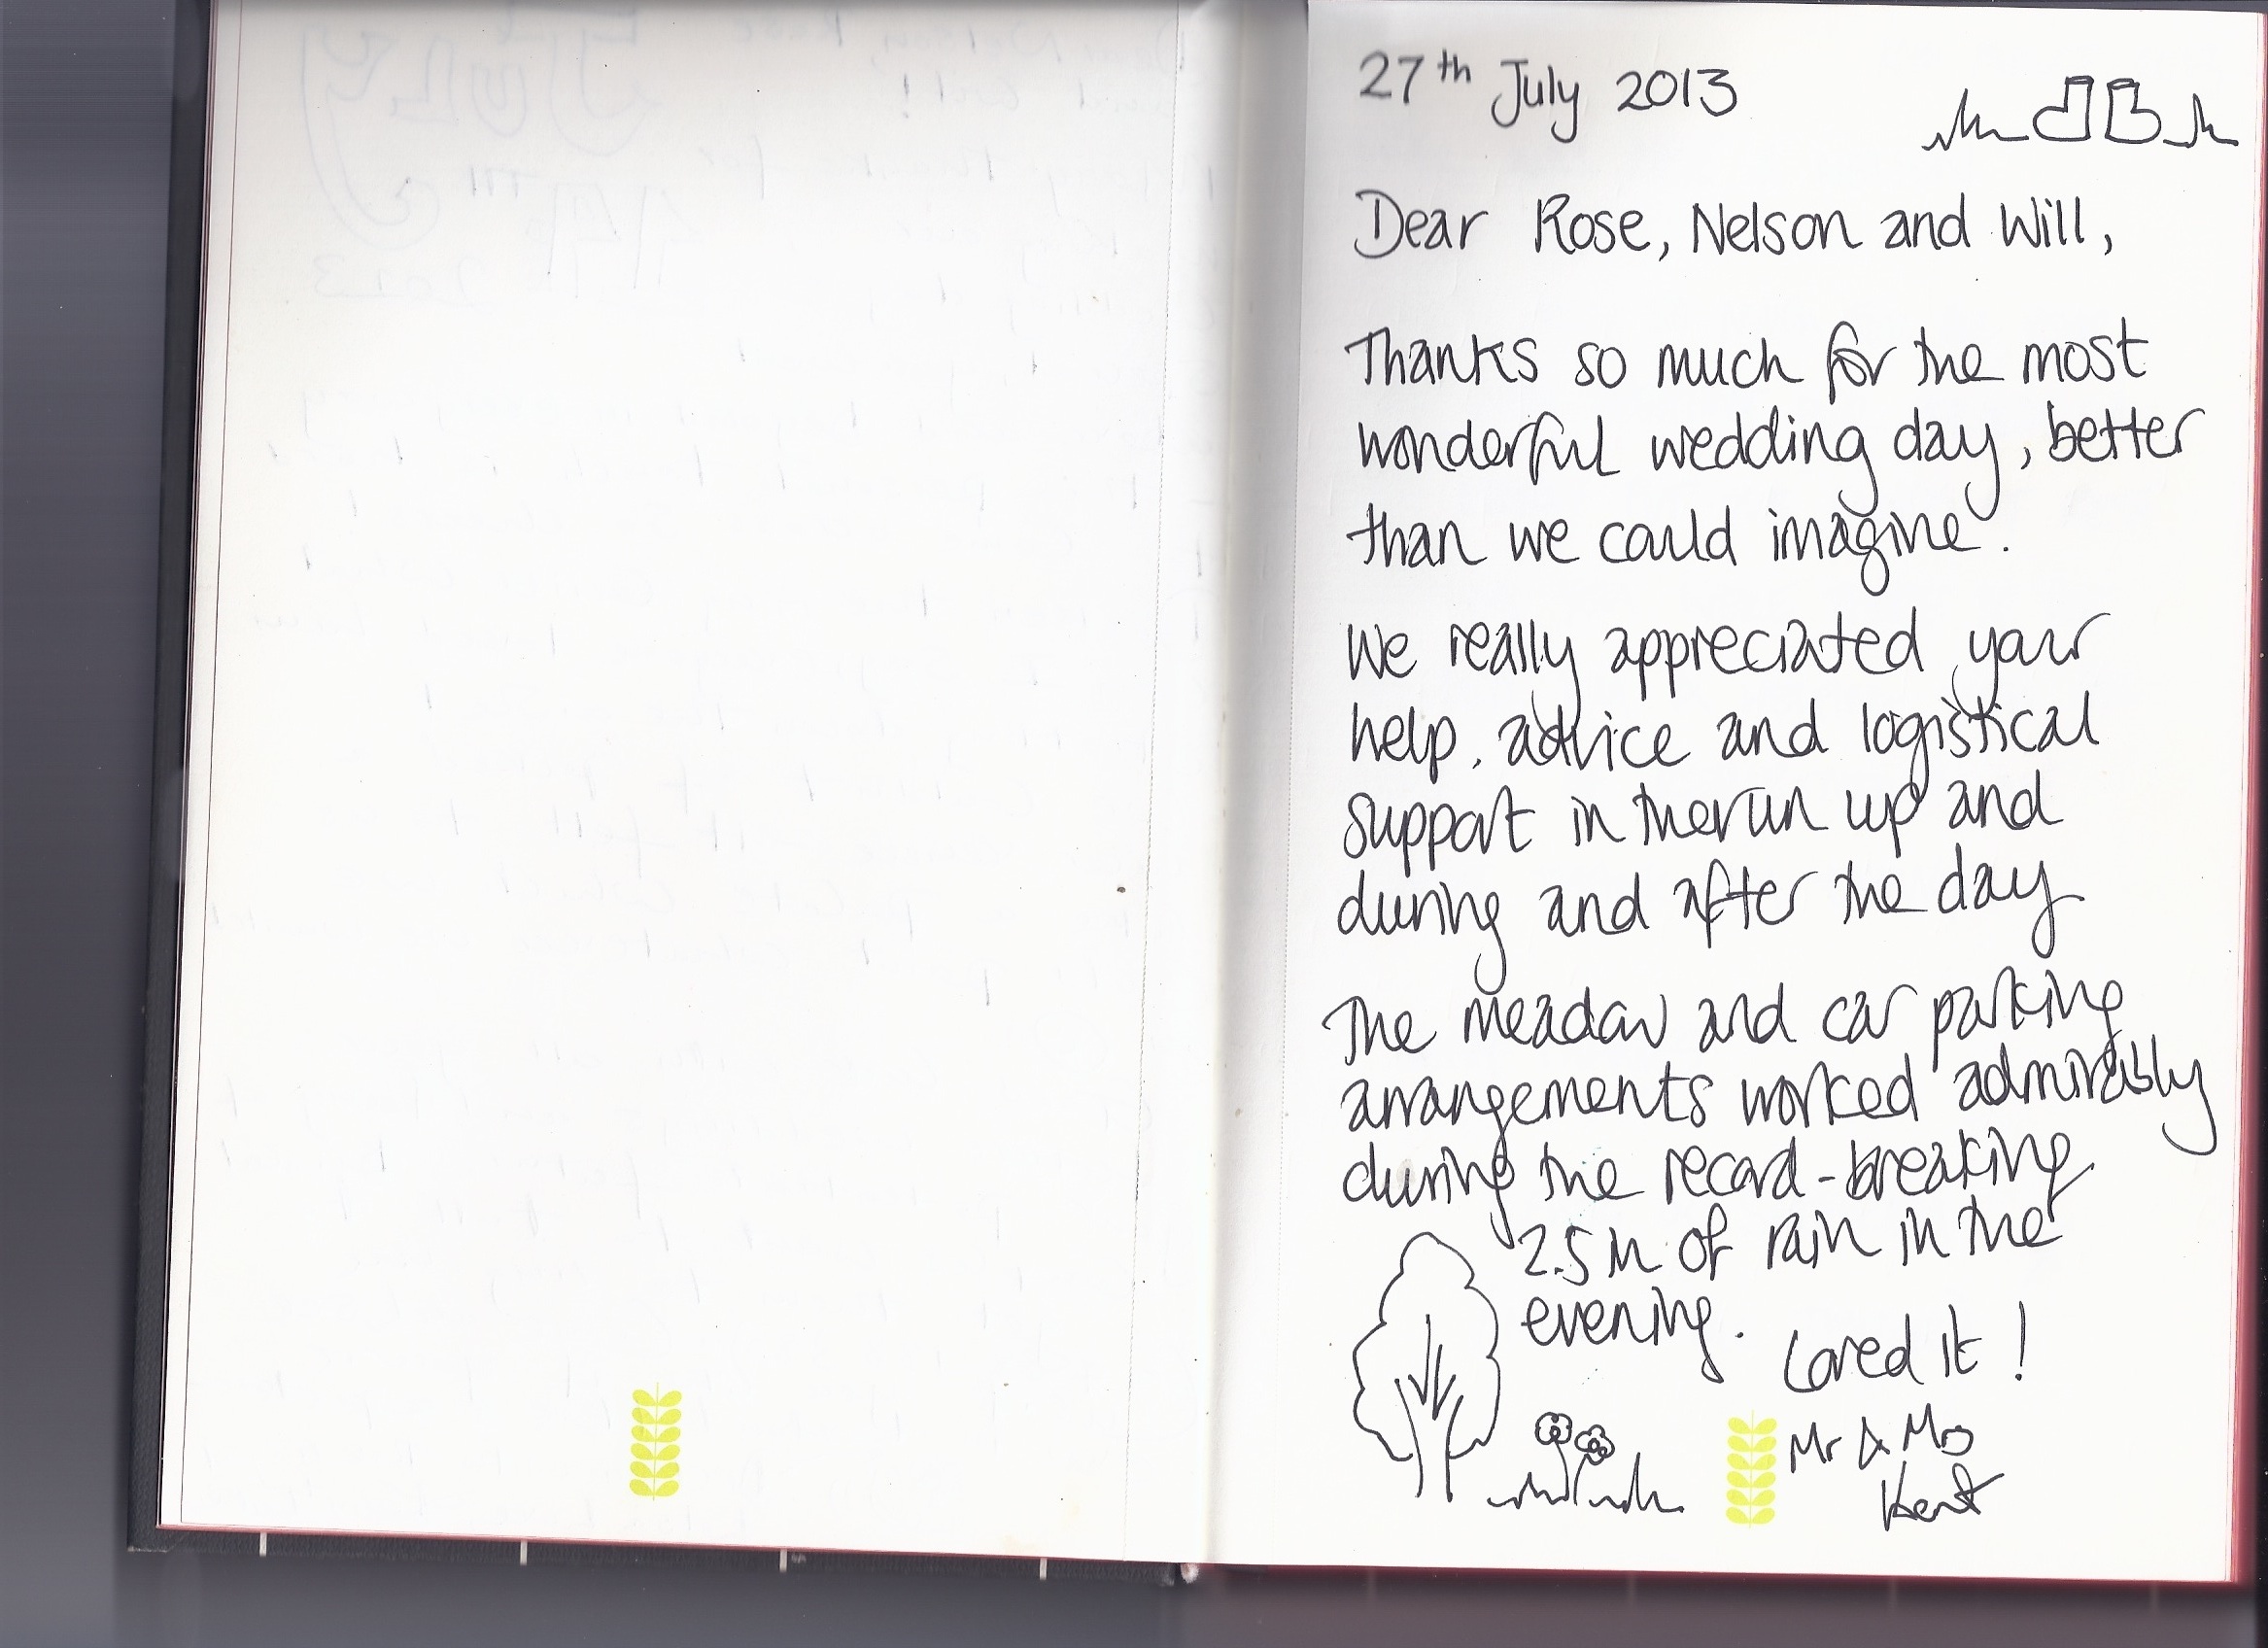 27th July 2013
Dear Rose, Nelson and Will,
Thanks so much for the most
wonderful wedding day, better
than we could imagine.
We really appreciated your
help, advice and logistical
support in the run up and
during and after the day
The meadow and car parking
arrangements worked admirably
during the record-breaking
2.5 in of rain in the
evening.
Loved it!
Mr & Mrs
Kent